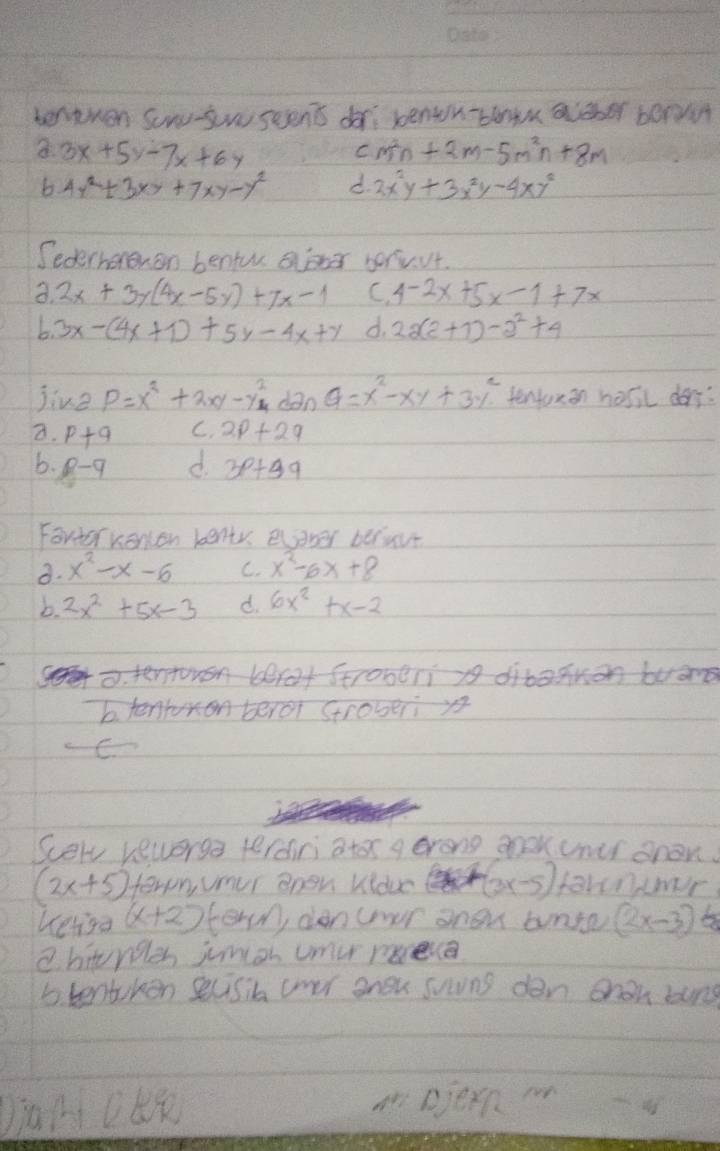 Date:
tentukan suku-suku sejenis dari bentuk-bentuk aljabar berikut
a. 3x + 5y - 7x + 6y c. m²n + 2m - 5m²n + 8m
b. 4y² + 3xy + 7xy - y² d. 2x²y + 3x²y - 4xy²
Sederhanakan bentuk aljabar berikut.
a. 2x + 3y(4x - 5y) + 7x - 1 c. 4 - 2x + 5x - 1 + 7x
b. 3x - (4x + 1) + 5y - 4x + y d. 2a(2 + 1) - a² + 4
jika P = x² + 2xy - y² dan q = x² - xy + 3y² tentukan hasil dari:
a. p + q c. 2p + 2q
b. p - q d. 3p + 4q
Faktorkanlan bentk aljabar berikut
a. x² - x - 6 c. x² - 6x + 8
b. 2x² + 5x - 3 d. 6x² + x - 2
a. tentukan berat stroberi yg dibasikan
b. tentukan berat stroberi yg
c
Suatu keluarga terdiri atas 4 orang anak umur anak
(2x + 5) tahun, umur anak kedua (3x - 5) tahun, umur
ketiga (x + 2) tahun, dan umur anak bungsu (2x - 3)
a hitunglah jumlah umur mereka
b tentukan selisih umur anak sulung dan anak bung